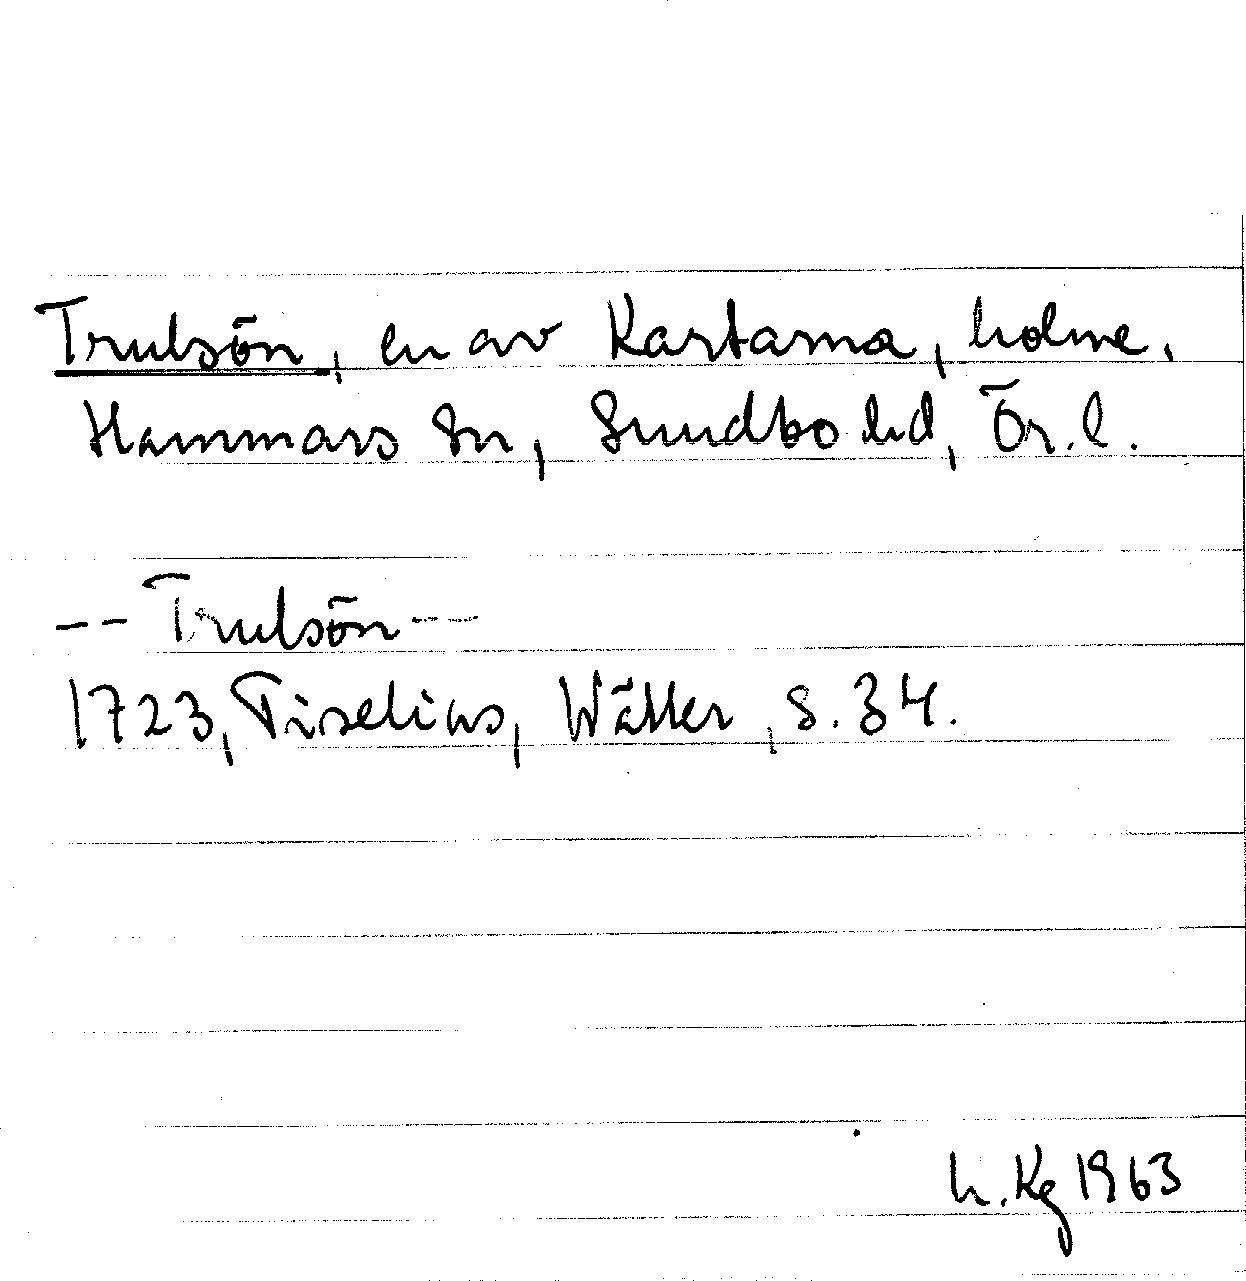 Trulsön, en av Kartarna, holme.
Hammars Sn, Sundbo hd, Ör. l.
-- Trulsön --
1723, Tiselius, Wätter, s. 34.
L. Kg 1963